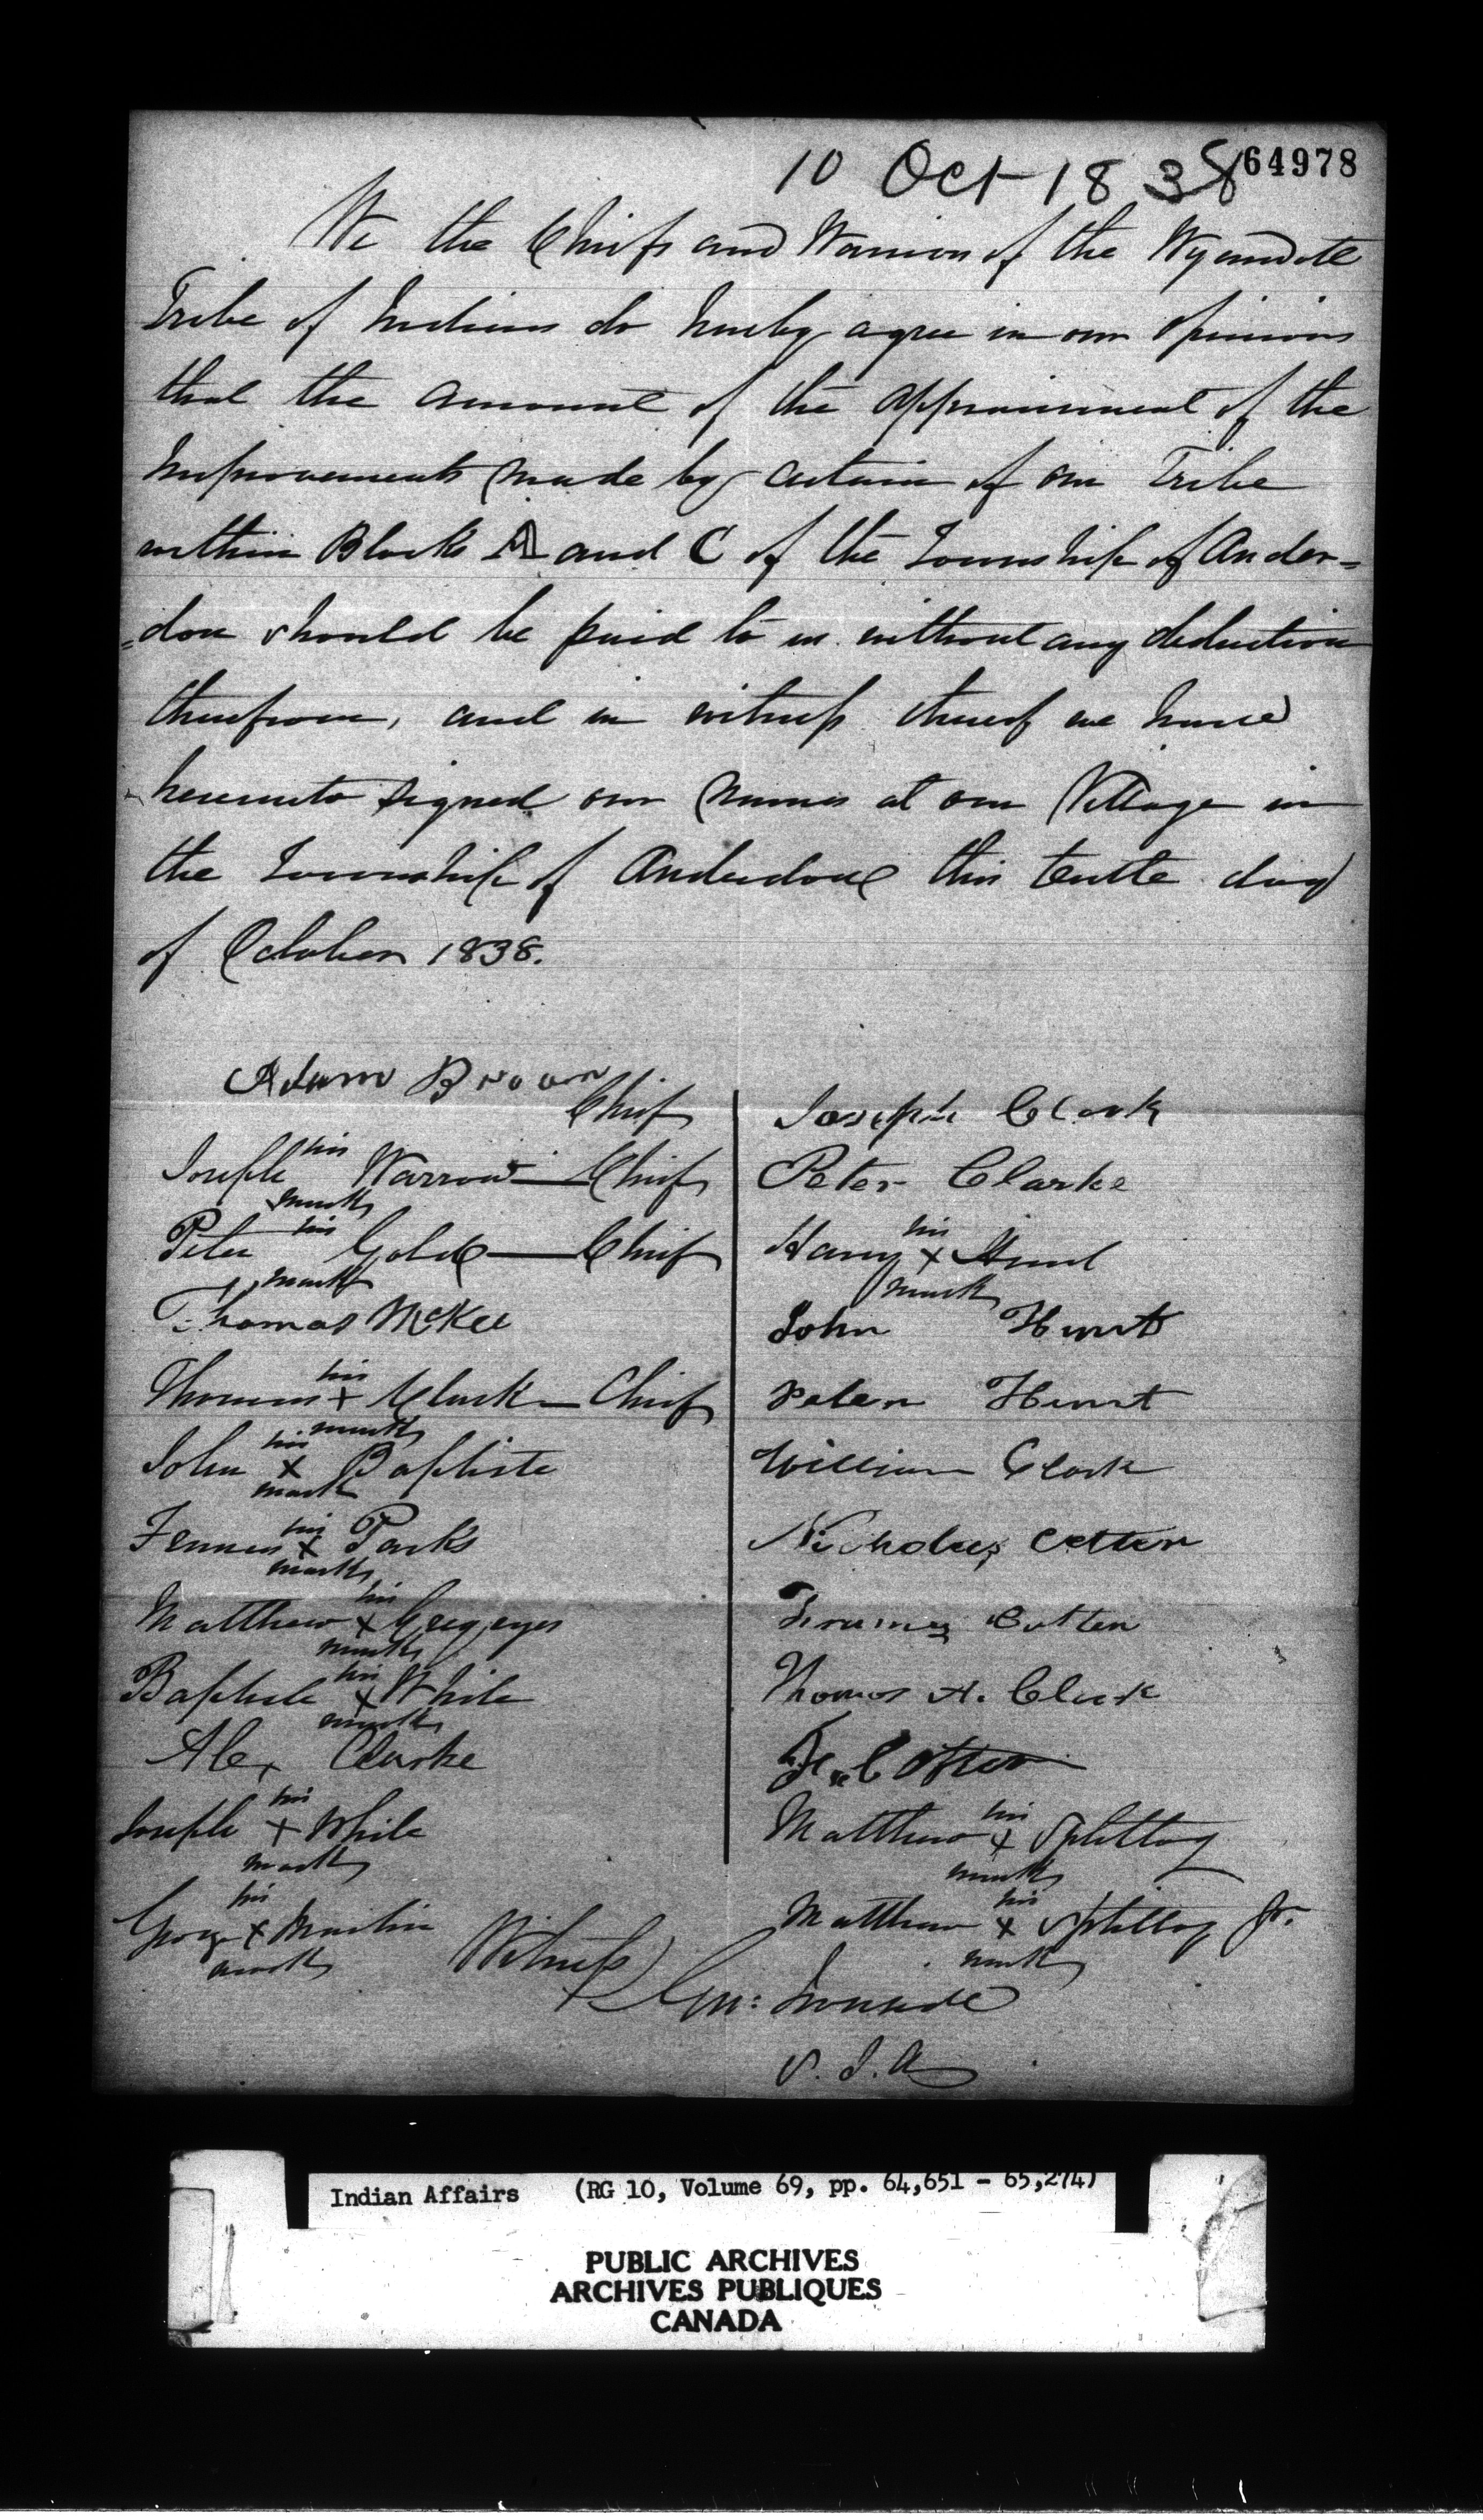 10 Oct 1838
64978
We the Chiefs and Warriors of the Wyandott
Tribe of Indians do hereby agree in our opinions
that the amount of the appraisement of the
Improvements made by certain of our Tribe
within Blocks A and C of the Township of Ander=
=don should be paid to us without any deduction
therefrom, and in witness thereof we have
hereunto signed our names at our Village in
the Township of Anderdon this tenth day
of October 1838.
Adam Brown
Chief
Joseph his Warrow — Chief
mark
Peter his Gold — Chief
mark
Thomas McKee
Thomas his + Clark — Chief
mark
John his x Baptiste
mark
his x Parks
mark
Matthew his x Greyeyes
mark
Baptiste his x White
mark
Alex Clarke
Joseph his + White
mark
George his x Martin
mark
Joseph Clark
Peter Clarke
Harry his x Hunt
mark
John Hunt
Peter Hunt
William Clark
Nicholas Cotter
Cotter
Thomas A. Clark
Cotter
Matthew his x Splitlog
mark
Matthew his x Splitlog Jr.
mark
Witness
Geo: Ironside
S. I. A
Indian Affairs (RG 10, Volume 69, pp. 64,651 - 65,274)
PUBLIC ARCHIVES
ARCHIVES PUBLIQUES
CANADA